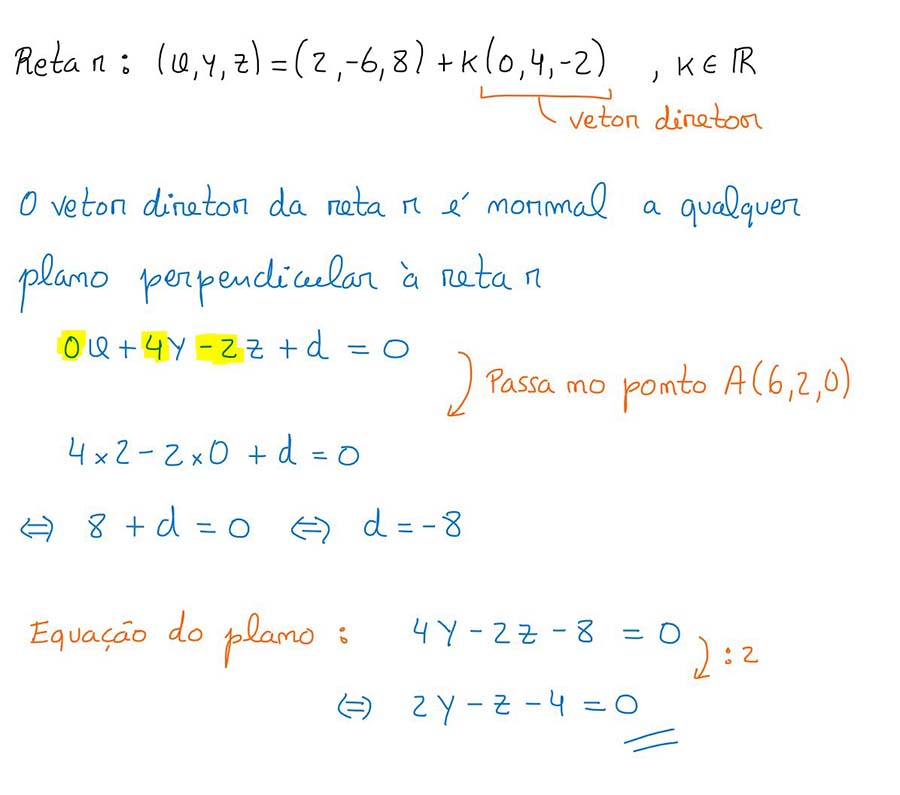 Reta r: (x, y, z) = (2, -6, 8) + k(0, 4, -2) , k ∈ ℝ
vetor diretor
O vetor diretor da reta r é normal a qualquer
plano perpendicular à reta r
0x + 4y - 2z + d = 0
Passa no ponto A(6, 2, 0)
4 × 2 - 2 × 0 + d = 0
⇔ 8 + d = 0 ⇔ d = -8
Equação do plano: 4y - 2z - 8 = 0
: 2
⇔ 2y - z - 4 = 0